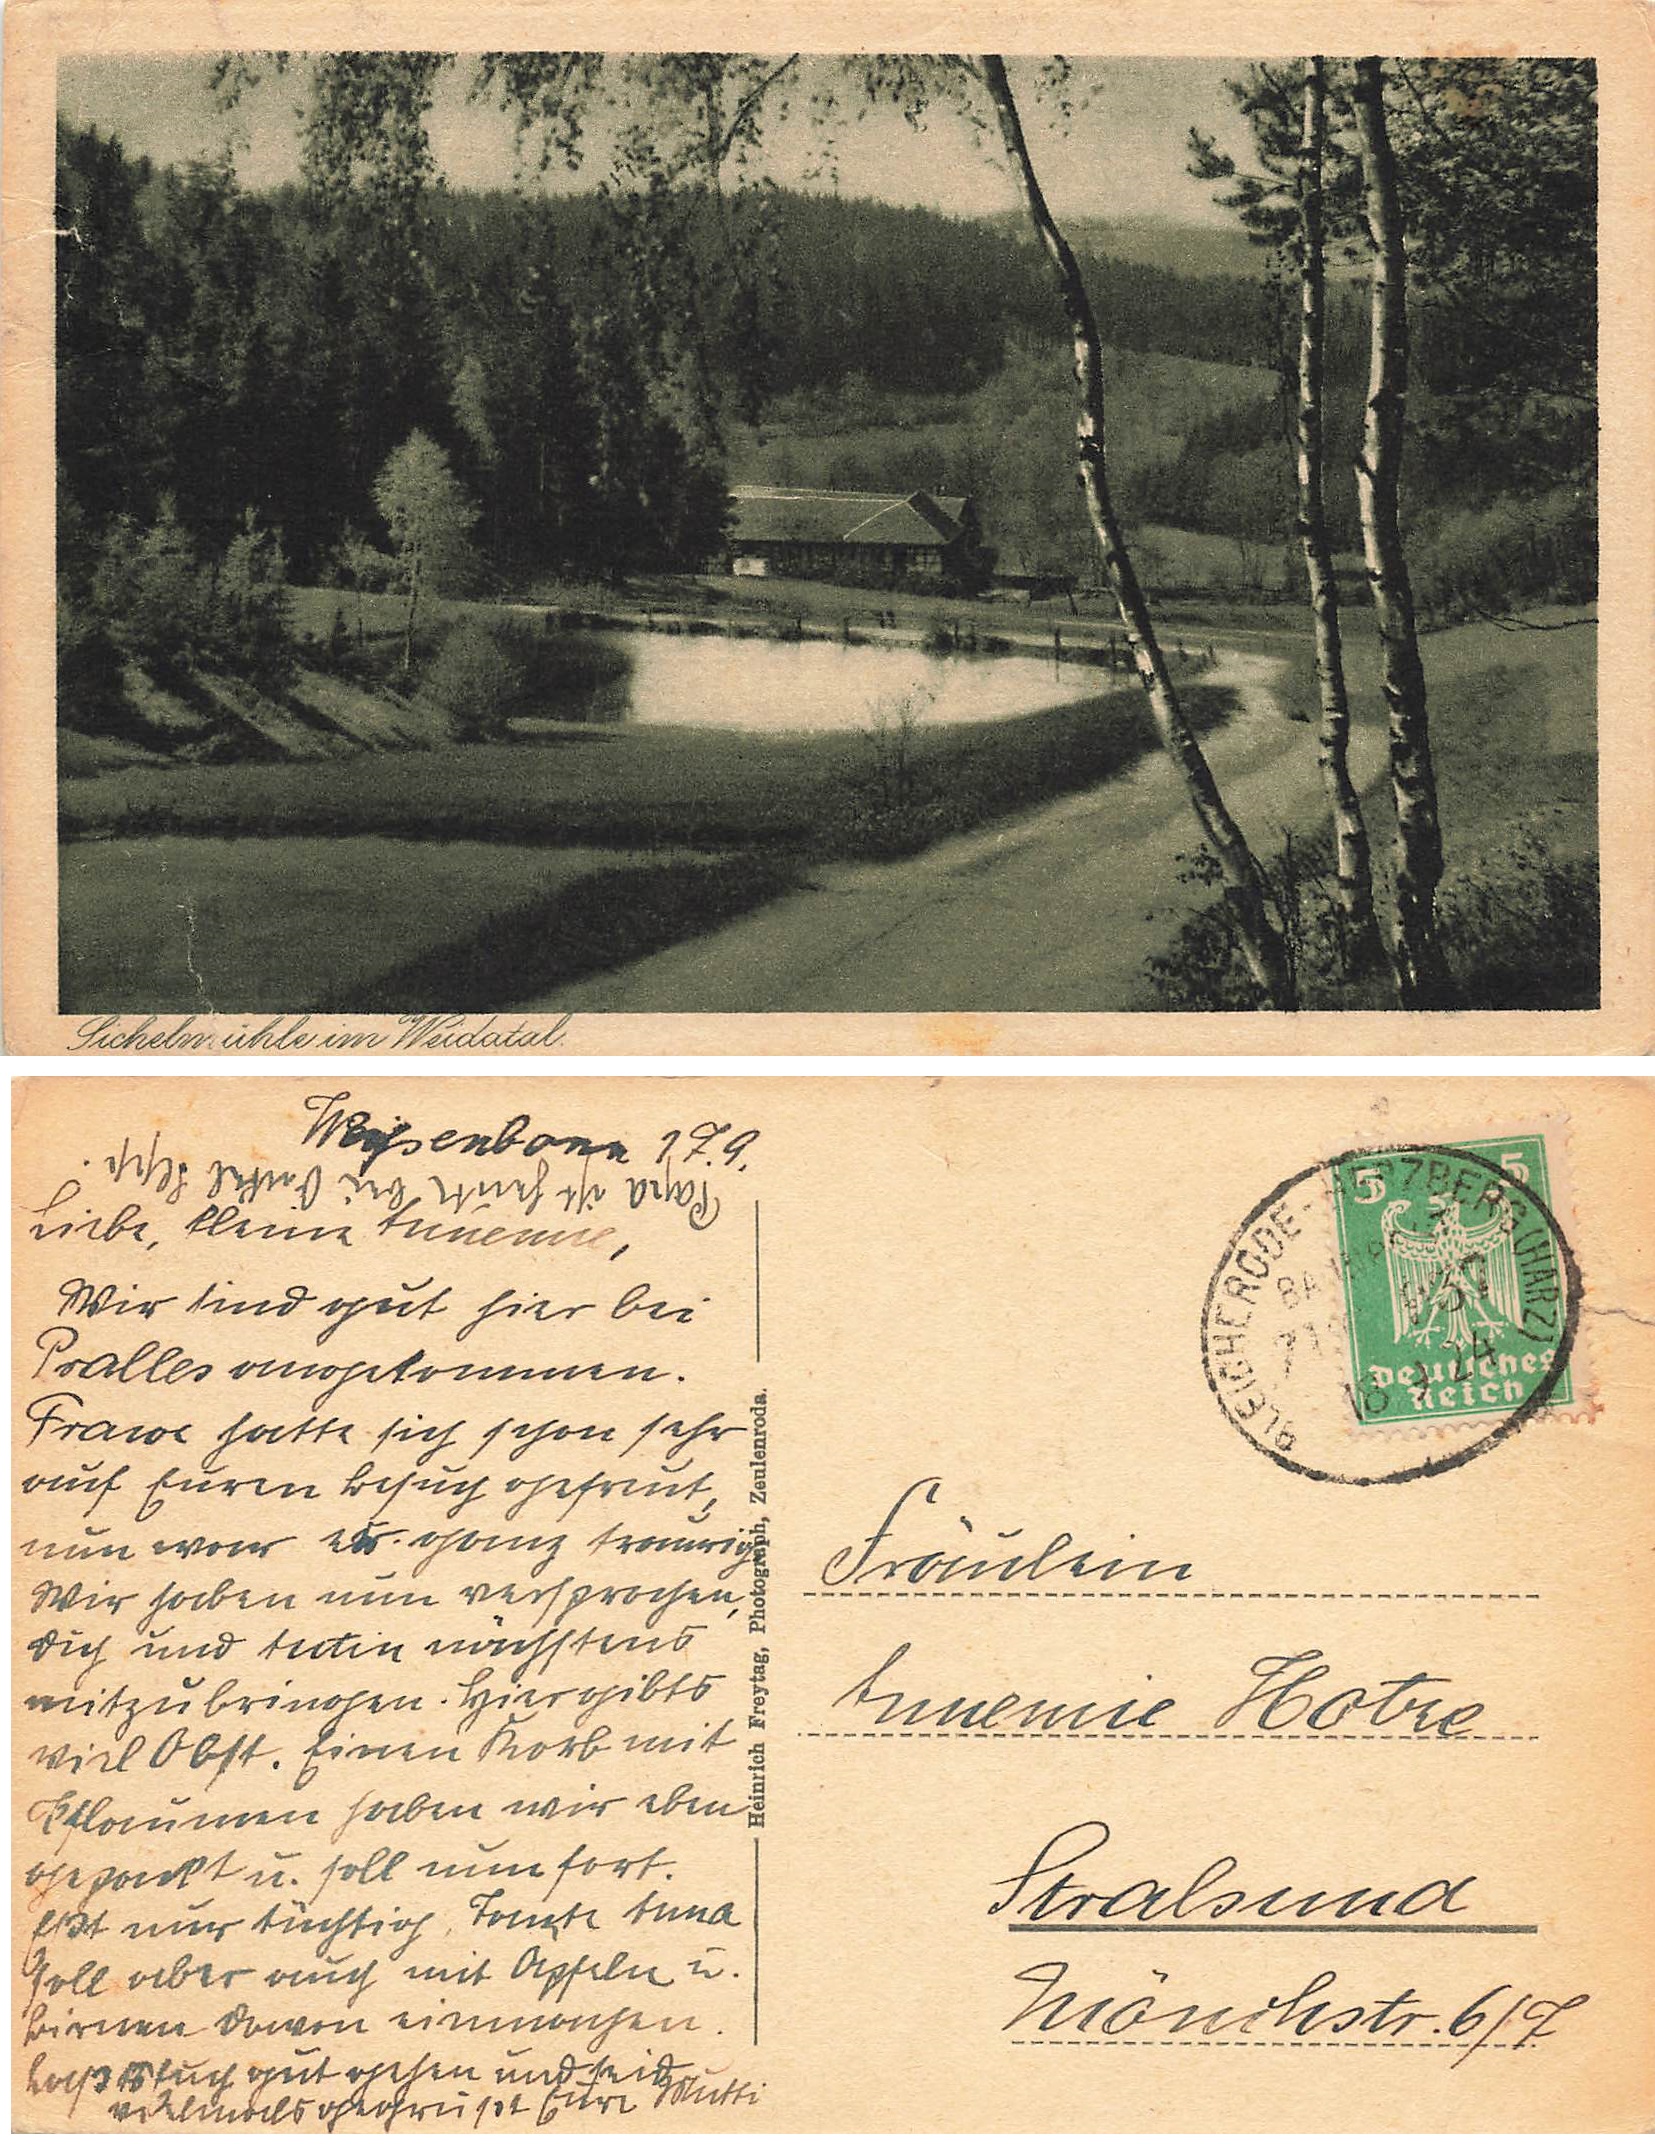 Sichelmühle im Weidatal.
17.9.
Papa ist heute bei Onkel
Liebe, kleine Annemie,
Wir sind gut hier bei
Pralles angekommen.
hatte sich schon sehr
auf Euren Besuch gefreut,
nun war er ganz traurig.
Wir haben nun versprochen,
Dich und nächstens
mitzubringen. Hier gibts
viel Obst. Einen Korb mit
Pflaumen haben wir eben
gepackt u. soll nun fort.
Eßt nur tüchtig, Tante Anna
soll aber auch mit Äpfeln u.
Birnen davon einmachen.
Laßt es Euch gut gehen und seid
vielmals gegrüßt Eure Mutti
Heinrich Freytag, Photograph, Zeulenroda.
BLEICHERODE-HERZBERG (HARZ)
24
5 5
Deutsches
Reich
Fräulein
Annemie Hotze
Stralsund
Mönchstr. 6/7